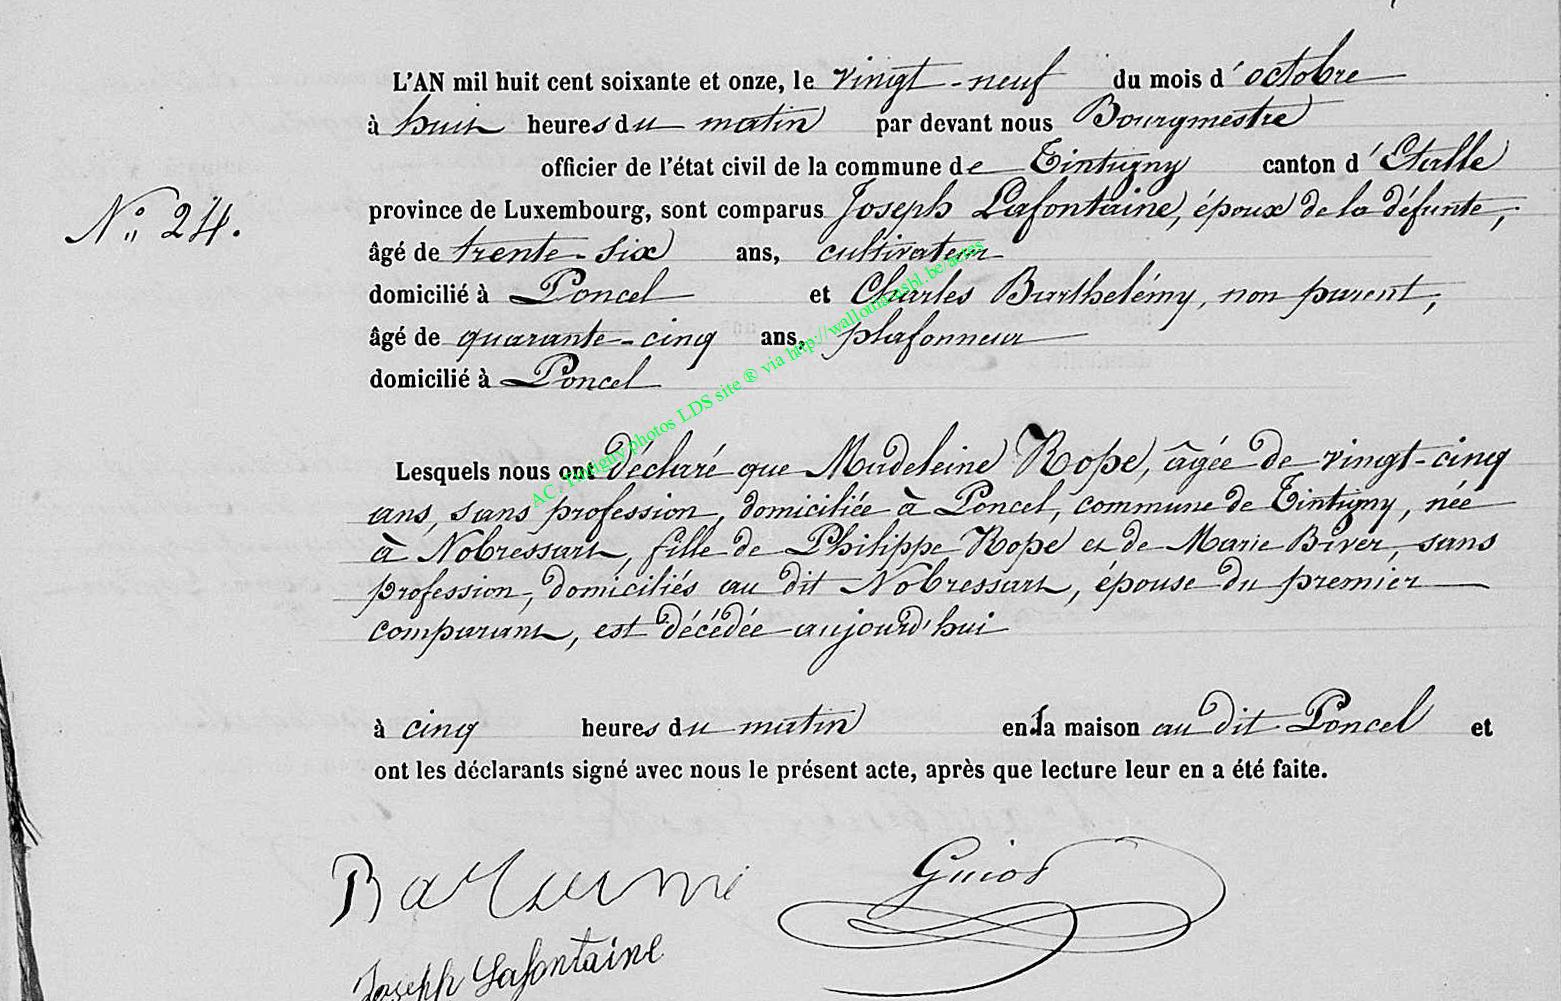 L'AN mil huit cent soixante et onze, le vingt-neuf du mois d'octobre
à huit heures du matin par devant nous Bourgmestre
officier de l'état civil de la commune de Tintigny canton d'Etalle
N° 24.
province de Luxembourg, sont comparus Joseph Lafontaine, époux de la défunte,
âgé de trente-six ans, cultivateur
domicilié à Poncel et Charles Barthelémy, non parent,
âgé de quarante-cinq ans, plafonneur
domicilié à Poncel
AC. Tintigny photos LDS site ® via http://wallonia-asbl.be/actes
Lesquels nous ont déclaré que Madeleine Rope, âgée de vingt-cinq
ans, sans profession, domiciliée à Poncel, commune de Tintigny, née
à Nobressart, fille de Philippe Rope et de Marie Biver, sans
profession, domiciliés au dit Nobressart, épouse du premier
comparant, est décédée aujourd'hui
à cinq heures du matin en la maison au dit Poncel et
ont les déclarants signé avec nous le présent acte, après que lecture leur en a été faite.
Guiot
Joseph Lafontaine